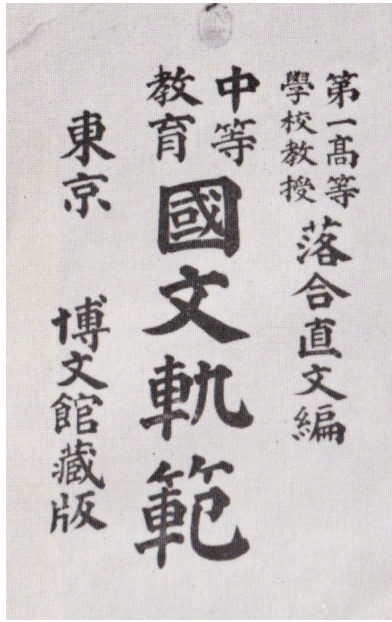 第一高等學校教授 落合直文編
中等教育 國文軌範
東京 博文館藏版